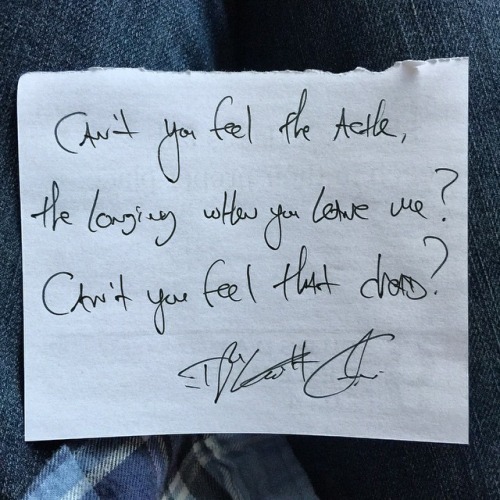 Can't you feel the Ache,
the longing when you leave me?
Can't you feel that